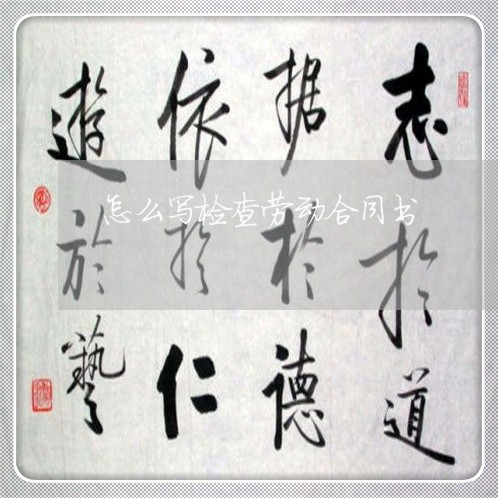 志於道
据於德
依於仁
遊於藝
怎么写检查劳动合同书